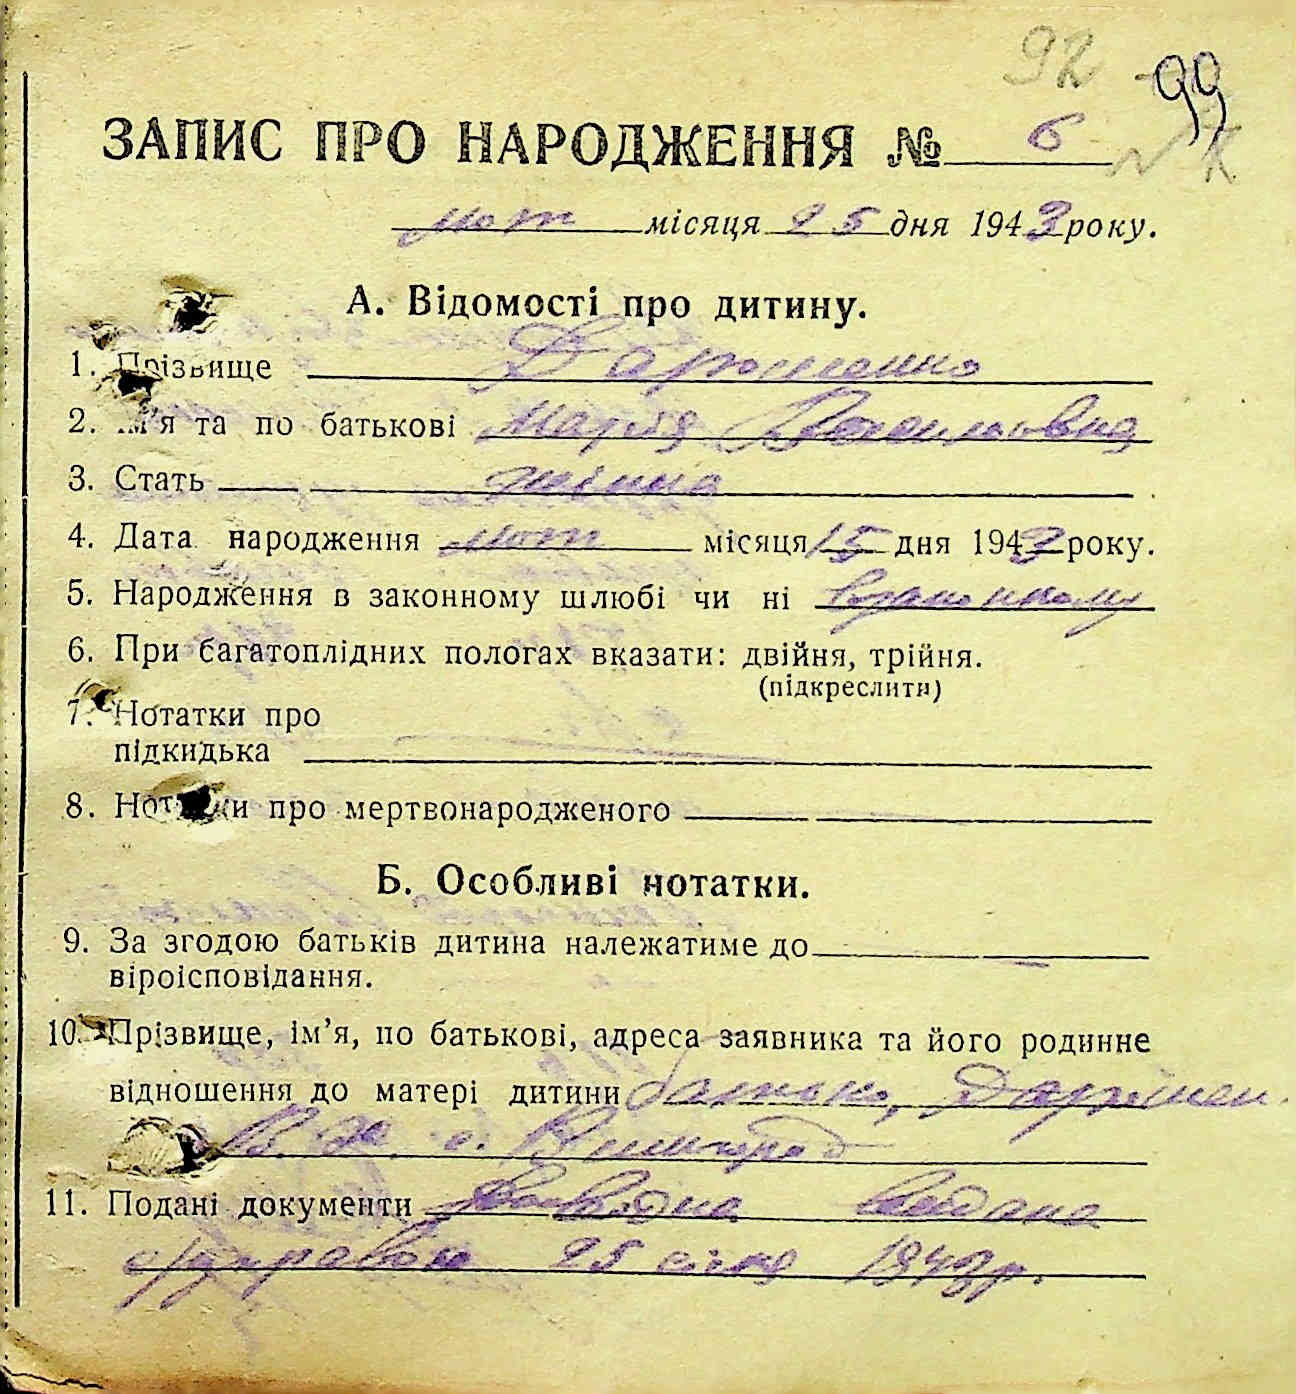 92 99
ЗАПИС ПРО НАРОДЖЕННЯ № 6
лют місяця 25 дня 1943 року.
А. Відомості про дитину.
1. Прізвище
2. Ім'я та по батькові Марія Васильовна
3. Стать жіноча
4. Дата народження лют місяця 15 дня 1943 року.
5. Народження в законному шлюбі чи ні взаконному
6. При багатоплідних пологах вказати: двійня, трійня.
(підкреслити)
7. Нотатки про
підкидька
8. Нотатки про мертвонародженого
Б. Особливі нотатки.
9. За згодою батьків дитина належатиме до
віроісповідання.
10. Прізвище, ім'я, по батькові, адреса заявника та його родинне
відношення до матері дитини батько,
с. Вишгород
11. Подані документи видана
с/управою 25 січня 1943 р.